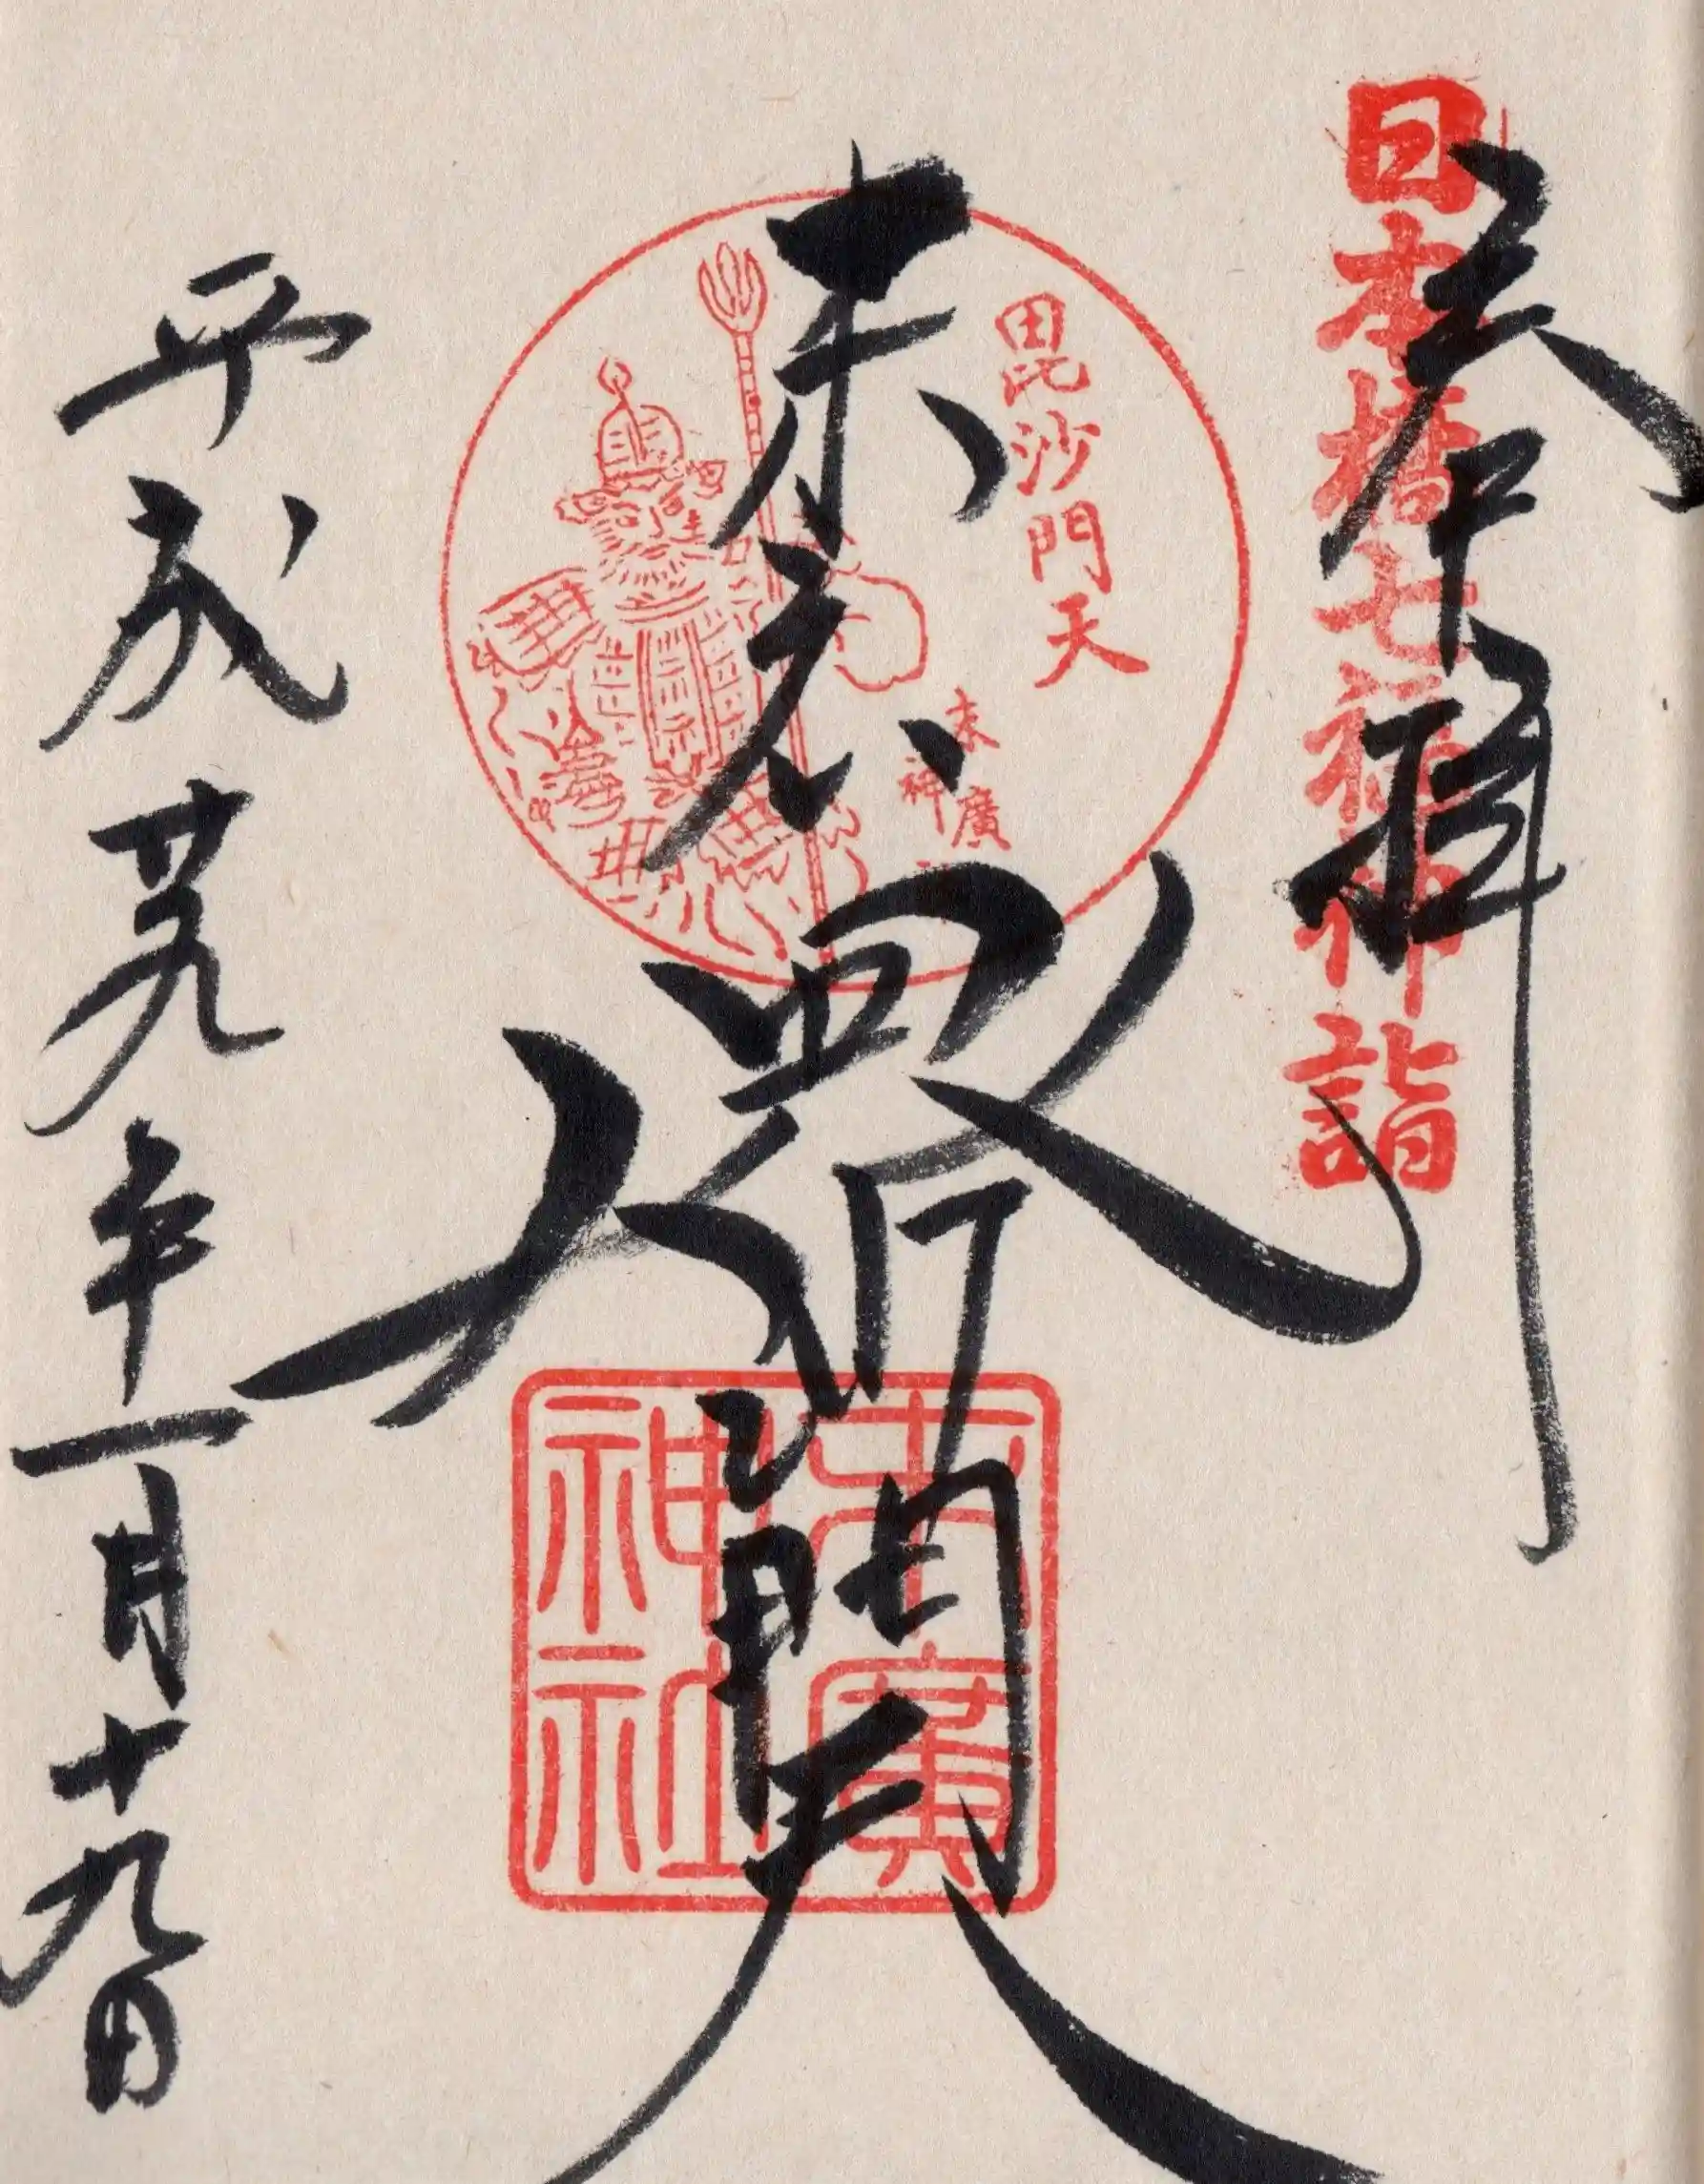 奉拝
日本橋七福神詣
末広
毘沙門天
毘沙門天
末廣
神
末廣
神社
平成廿九年一月十九日